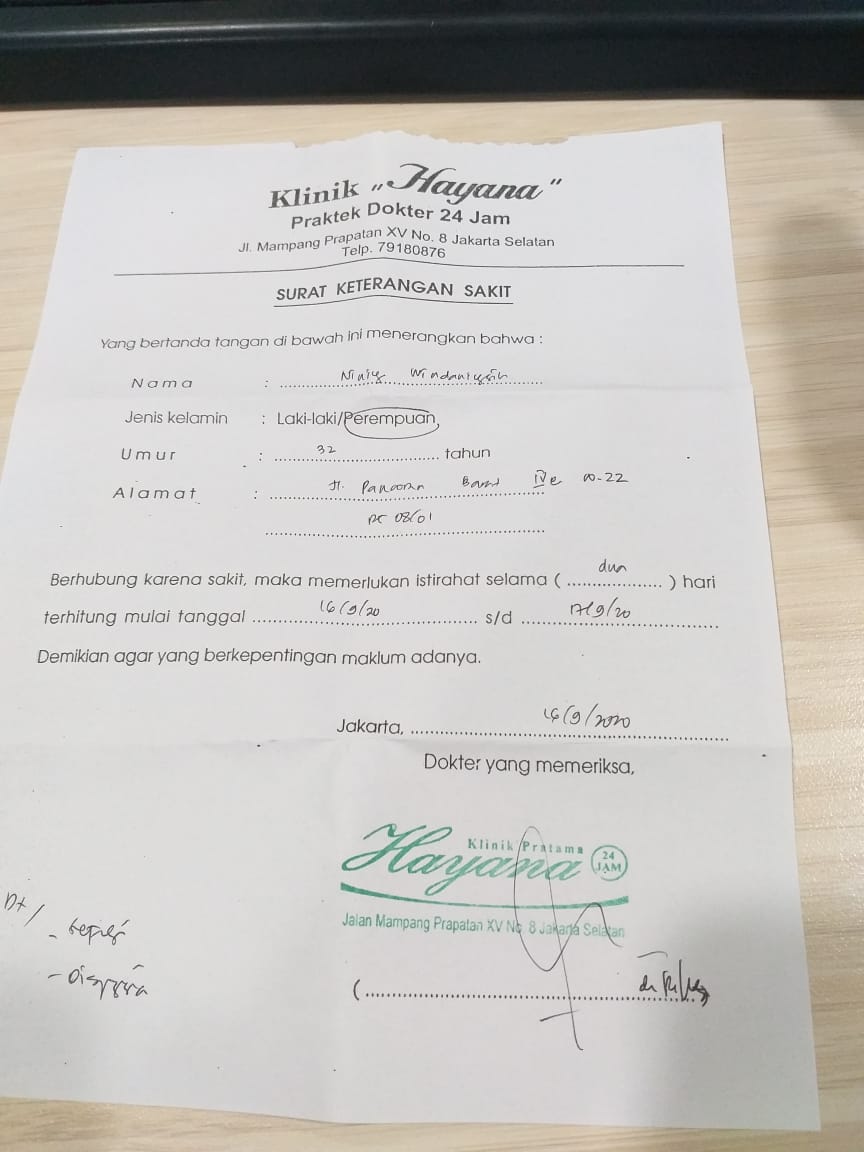 Klinik „Hayana"
Praktek Dokter 24 Jam
Jl. Mampang Prapatan XV No. 8 Jakarta Selatan
Telp. 79180876
SURAT KETERANGAN SAKIT
Yang bertanda tangan di bawah ini menerangkan bahwa :
Nama :
Jenis kelamin : Laki-laki/Perempuan
Umur : 32 tahun
Alamat : Jl. Pancoran Barat IV e no. 22
RT 08/01
Berhubung karena sakit, maka memerlukan istirahat selama ( dua ) hari
terhitung mulai tanggal 16/9/20 s/d 17/9/20
Demikian agar yang berkepentingan maklum adanya.
Jakarta, 16/9/2020
Dokter yang memeriksa,
Klinik Pratama
Hayana 24 JAM
Jalan Mampang Prapatan XV No. 8 Jakarta Selatan